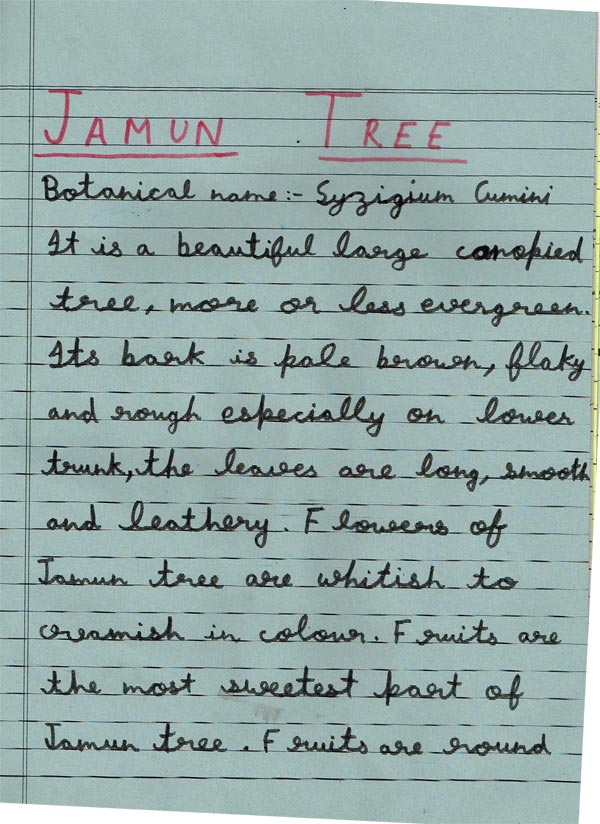 JAMUN TREE
Botanical name:- Syzigium Cumini
It is a beautiful large canopied
tree, more or less evergreen.
Its bark is pale brown, flaky
and rough especially on lower
trunk, the leaves are long, smooth
and leathery. Flowers of
Jamun tree are whitish to
creamish in colour. Fruits are
the most sweetest part of
Jamun tree. Fruits are round